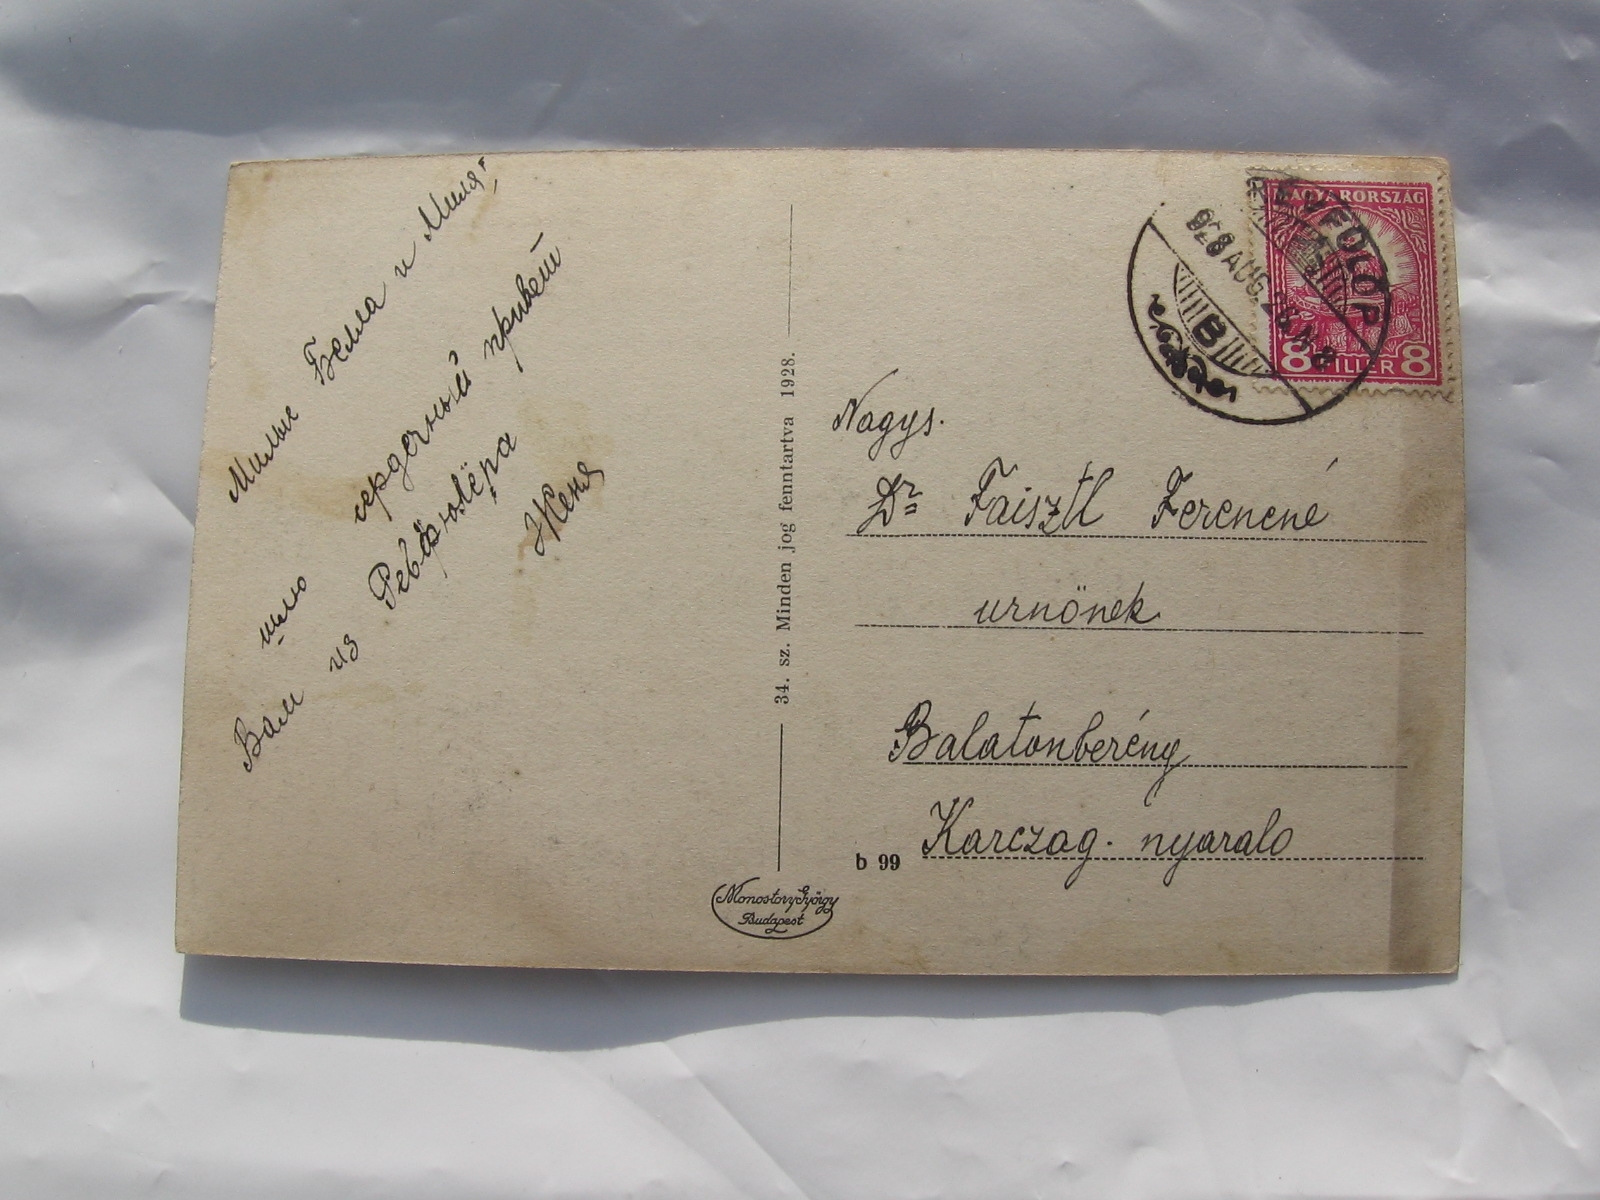 Милые Белла и Миля!
шлю сердечный привет
Вам из Ревфюлёра
Женя
34. sz. Minden jog fenntartva 1928.
MAGYARORSZÁG
8 FILLÉR 8
928 AUG. 26. N 8
B
Nagys.
Dr Faisztl Ferencné
urnőnek
Balatonberény
Karczag. nyaralo
b 99
Monostory György
Budapest